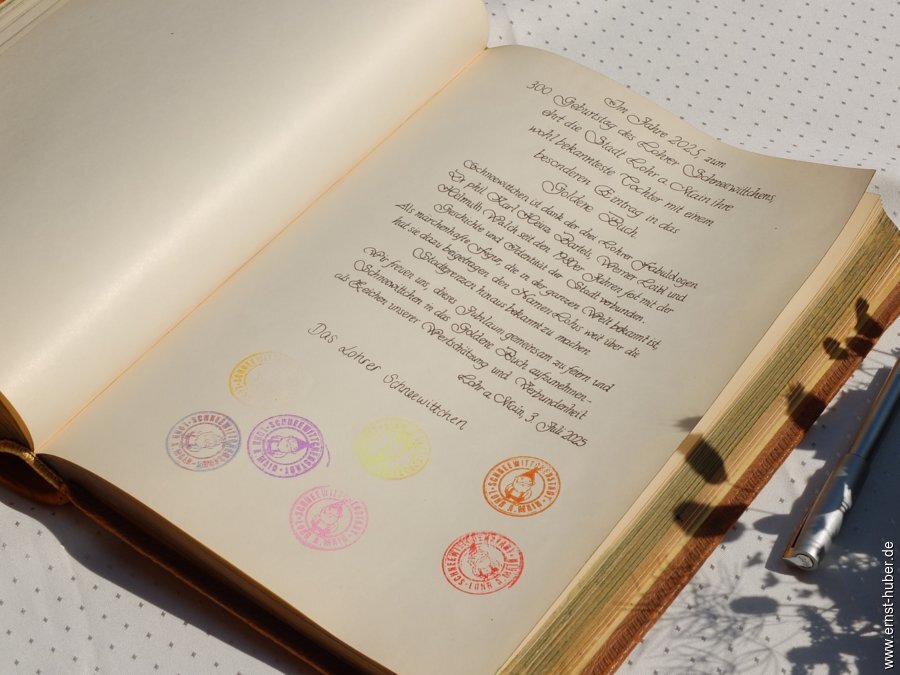 Im Jahre 2025, zum
300. Geburtstag des Lohrer Schneewittchens
ehrt die Stadt Lohr a. Main ihre
wohl bekannteste Tochter mit einem
besonderen Eintrag in das
Goldene Buch.
Schneewittchen ist dank der drei Lohrer Fabulologen
Dr. phil. Karl Heinz Bartels, Werner Loibl und
Helmuth Walch seit den 1980er Jahren fest mit der
Geschichte und Identität der Stadt verbunden.
Als märchenhafte Figur, die in der ganzen Welt bekannt ist,
hat sie dazu beigetragen, den Namen Lohrs weit über die
Stadtgrenzen hinaus bekannt zu machen.
Wir freuen uns, dieses Jubiläum gemeinsam zu feiern und
Schneewittchen in das Goldene Buch aufzunehmen -
als Zeichen unserer Wertschätzung und Verbundenheit.
Lohr a. Main, 3. Juli 2025
Das Lohrer Schneewittchen
SCHNEEWITTCHENSTADT
LOHR A. MAIN
SCHNEEWITTCHENSTADT
LOHR A. MAIN
SCHNEEWITTCHENSTADT
LOHR A. MAIN
SCHNEEWITTCHENSTADT
LOHR A. MAIN
SCHNEEWITTCHENSTADT
LOHR A. MAIN
www.ernst-huber.de